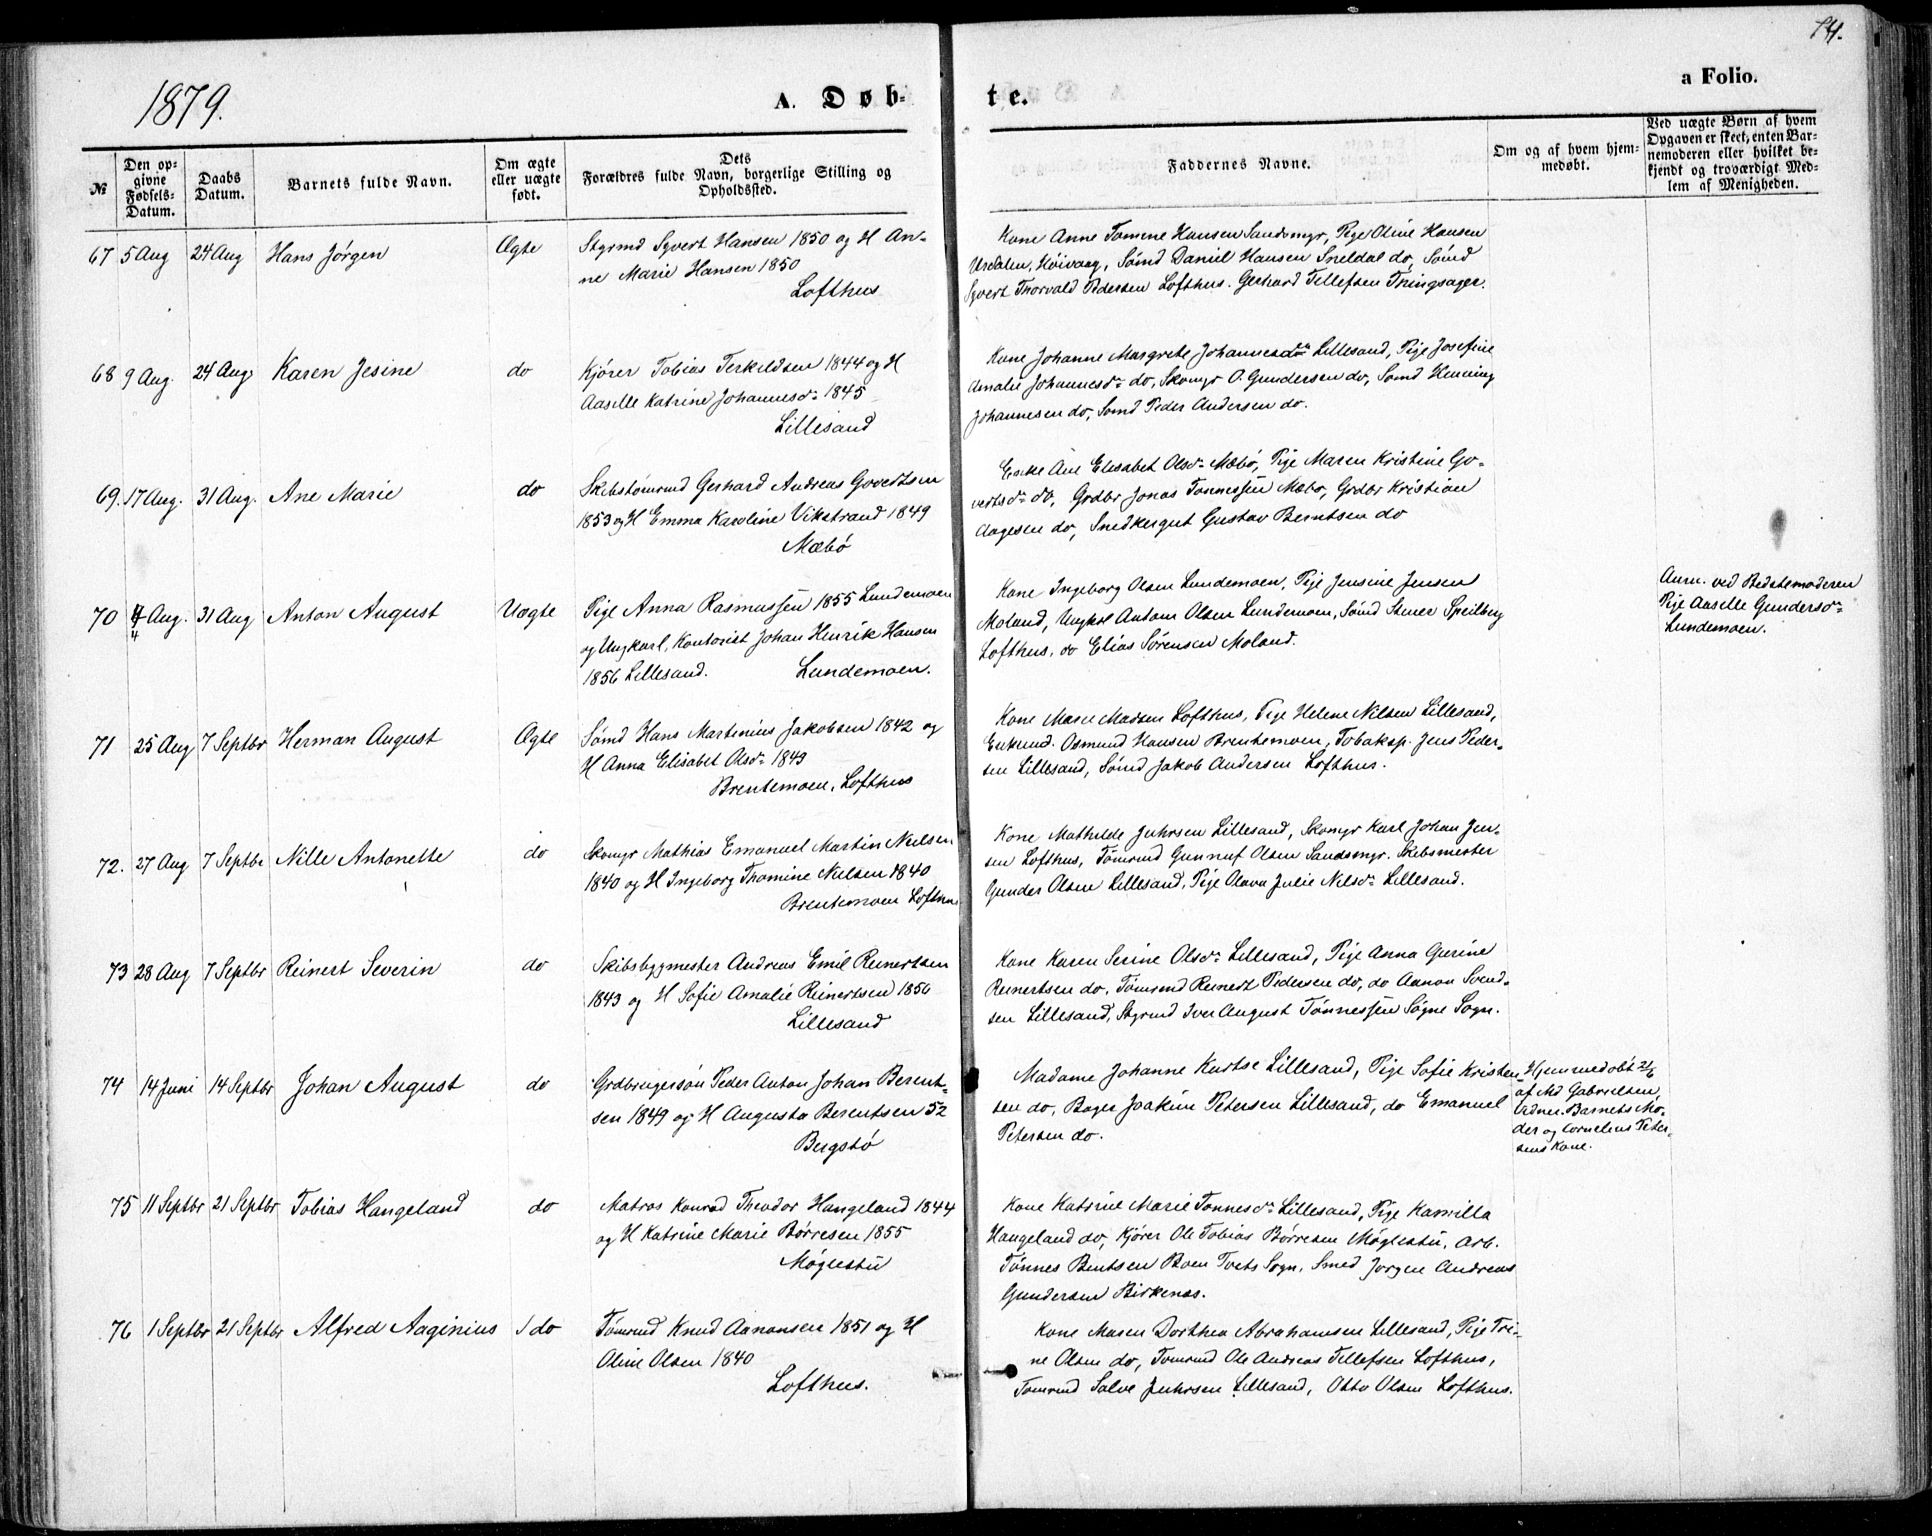 1879.
A. Døb-
te.
a Folio.
№
Den op-
givne
Fødsels-
Datum.
Daabs
Datum.
Barnets fulde Navn.
Om ægte
eller uægte
født.
Dets
Forældres fulde Navn, borgerlige Stilling og
Opholdssted.
Faddernes Navne.
Om og af hvem hjem-
medøbt.
Ved uægte Børn af hvem
Opgaven er skeet, enten Bar-
nemoderen eller hvilket be-
kjendt og troværdigt Med-
lem af Menigheden.
67 5 Aug 24 Aug Hans Jørgen Ægte
Styrmd Syvert Hansen 1850 og H An-
ne Marie Hansen 1850
Lofthus
Kone Anne Tomene Hansen Sandsmyr, Pige Oline Hansen
Urdalen, Høivaag, Sømd Daniel Hansen Sneldal do, Sømd
Syvert Thorvald Pedersen Lofthus. Gerhard Tellefsen Tningsager.
68 9 Aug. 24 Aug Karen Jesine do
Kjører Tobias Terkeldsen 1844 og H
Aaselle Katrine Johannesdr 1845
Lillesand
Kone Johanne Margrete Johannesdr Lillesand, Pige Josefine
Amalie Johannesdr do, Skomgr O. Gundersen do, Sømd Henning
Johannesen do, Sømd Peder Andersen do.
69. 17 Aug. 31 Aug. Ane Marie do
Skibstømrmd Gerhard Andreas Govertsen
1853 og H Emma Karoline Vikstrand 1849
Mæbø
Enke Ane Elisabet Olsdr Mæbø, Pige Maren Kristine Go-
vertsdr do, Grdbr Jonas Tønnessen Mæbø, Grdbr Kristian
Aagesen do, Snedkergut Gustav Berntsen do
70 4 Aug. 31 Aug Anton August Uægte
Pige Anna Rasmussen 1855 Lundemoen
og Ungkarl, Kontorist Johan Henrik Hansen
1856 Lillesand. Lundemoen.
Kone Ingeborg Olsen Lundemoen, Pige Jensine Jensen
Moland, Ungkl Antoni Olsen Lundemoen, Sømd Stener Speilberg
Lofthus, do Elias Sørensen Moland.
Anm. ved Bedstemoderen
Pige Aaselle Gundersdr
Lundemoen.
71 25 Aug 7 Septbr Herman August Ægte
Sømd Hans Martinius Jakobsen 1842 og
H Anna Elisabet Olsdr 1843
Brentemoen, Lofthus
Kone Maren Madsen Lofthus, Pige Helene Nilsen Lillesand,
Enkmd. Osmund Hansen Brentemoen, Tobaksp. Jens Peder-
sen Lillesand, Sømd Jakob Andersen Lofthus.
72. 27 Aug 7 Septbr Nille Antonette do
Skomgr Mathias Emanuel Martin Nielsen
1840 og H Ingeborg Thomine Nielsen 1840
Brentemoen Lofthus
Kone Mathilde Juhrsen Lillesand, Skomgr Karl Johan Jen-
sen Lofthus, Tømrmd Gunnuf Olsen Sandsmyr. Skibsmester
Gunder Olsen Lillesand, Pige Olava Julie Nilsdr Lillesand.
73 28 Aug 7 Septbr Reinert Severin do
Skibsbygmester Andreas Emil Reinertsen
1843 og H Sofie Amalie Reinertsen 1850
Lillesand
Kone Karen Serine Olsdr Lillesand, Pige Anna Gurine
Reinertsen do, Tømrmd Reinert Pedersen do, do Aanon Svend-
sen Lillesand, Styrmd Iver August Tønnessen Søgne Sogn.
74 14 Juni 14 Septbr Johan August do
Grdbrugersøn Peder Anton Johan Berent-
sen 1849 og H Augusta Berentsen 52
Bergstø
Madame Johanne Kurtse Lillesand, Pige Sofie Kristen-
sen do, Bager Joakim Petersen Lillesand, do Emanuel
Petersen do.
Hjemmedøbt 21/6
af Md Gabrielsen,
Vidner. Barnets Mo-
der og Cornelius Peter-
sens Kone.
75 11 Septbr 21 Septbr Tobias Hangeland do
Matros Konrad Theodor Hangeland 1844
og H Katrine Marie Børresen 1855
Møglestu
Kone Katrine Marie Tønnesdr Lillesand, Pige Kamilla
Hangeland do, Kjører Ole Tobias Børresen Møglestu, Arb.
Tønnes Bentsen Boen Tvets Sogn, Smed Jørgen Andreas
Gundersen Birkenæs.
76 1 Septbr 21 Septbr Alfred Aaginius do
Tømrmd Knud Aanonsen 1851 og H
Oline Olsen 1840
Lofthus.
Kone Maren Dorthea Abrahamsen Lillesand, Pige Tri-
ne Olsen do, Tømrmd Ole Andreas Tellefsen Lofthus,
Tømrmd Salve Juhrsen Lillesand, Otto Olsen Lofthus.